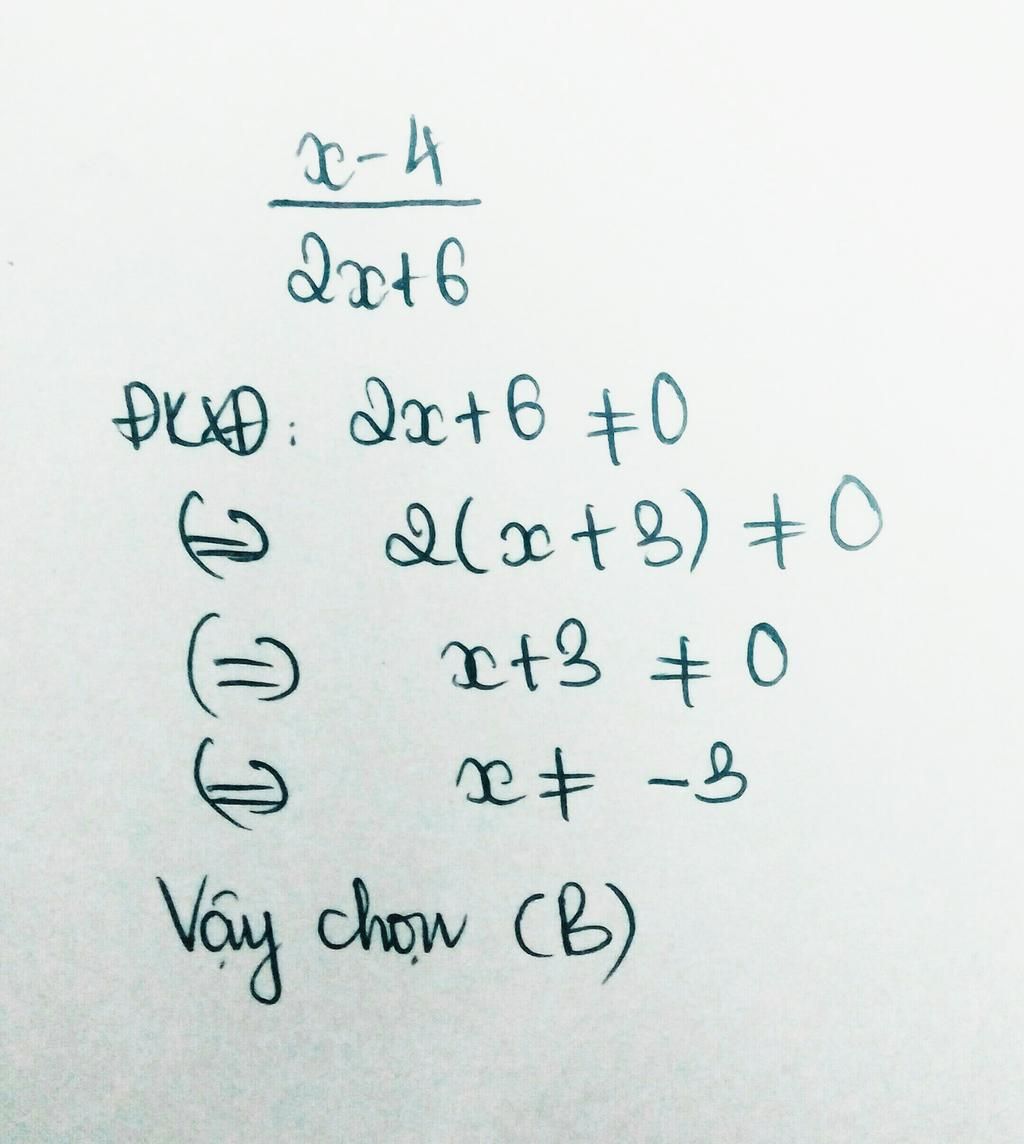 x-4
2x+6
ĐKXĐ: 2x+6 ≠0
(=) 2(x+3) ≠ 0
(=) x+3 ≠ 0
(=) x ≠ -3
Vậy chọn (B)